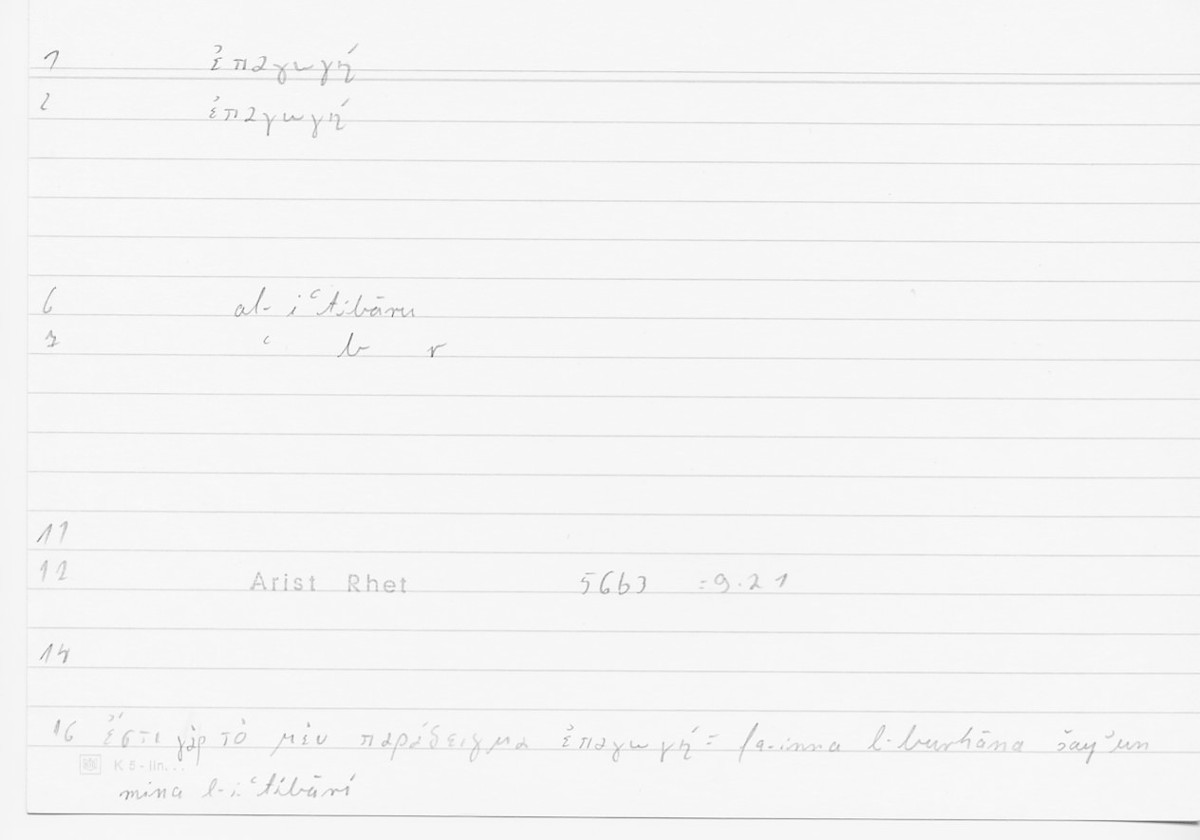 1 ἐπαγωγή
2 ἐπαγωγή
6 al-iʿtibāru
7 ʿ b r
11
12 Arist Rhet 56b3 =9.21
14
16 ἔστι γὰρ τὸ μὲν παράδειγμα ἐπαγωγή = fa-inna l-burhāna šayʾun
K 5-lin...
mina l-iʿtibāri